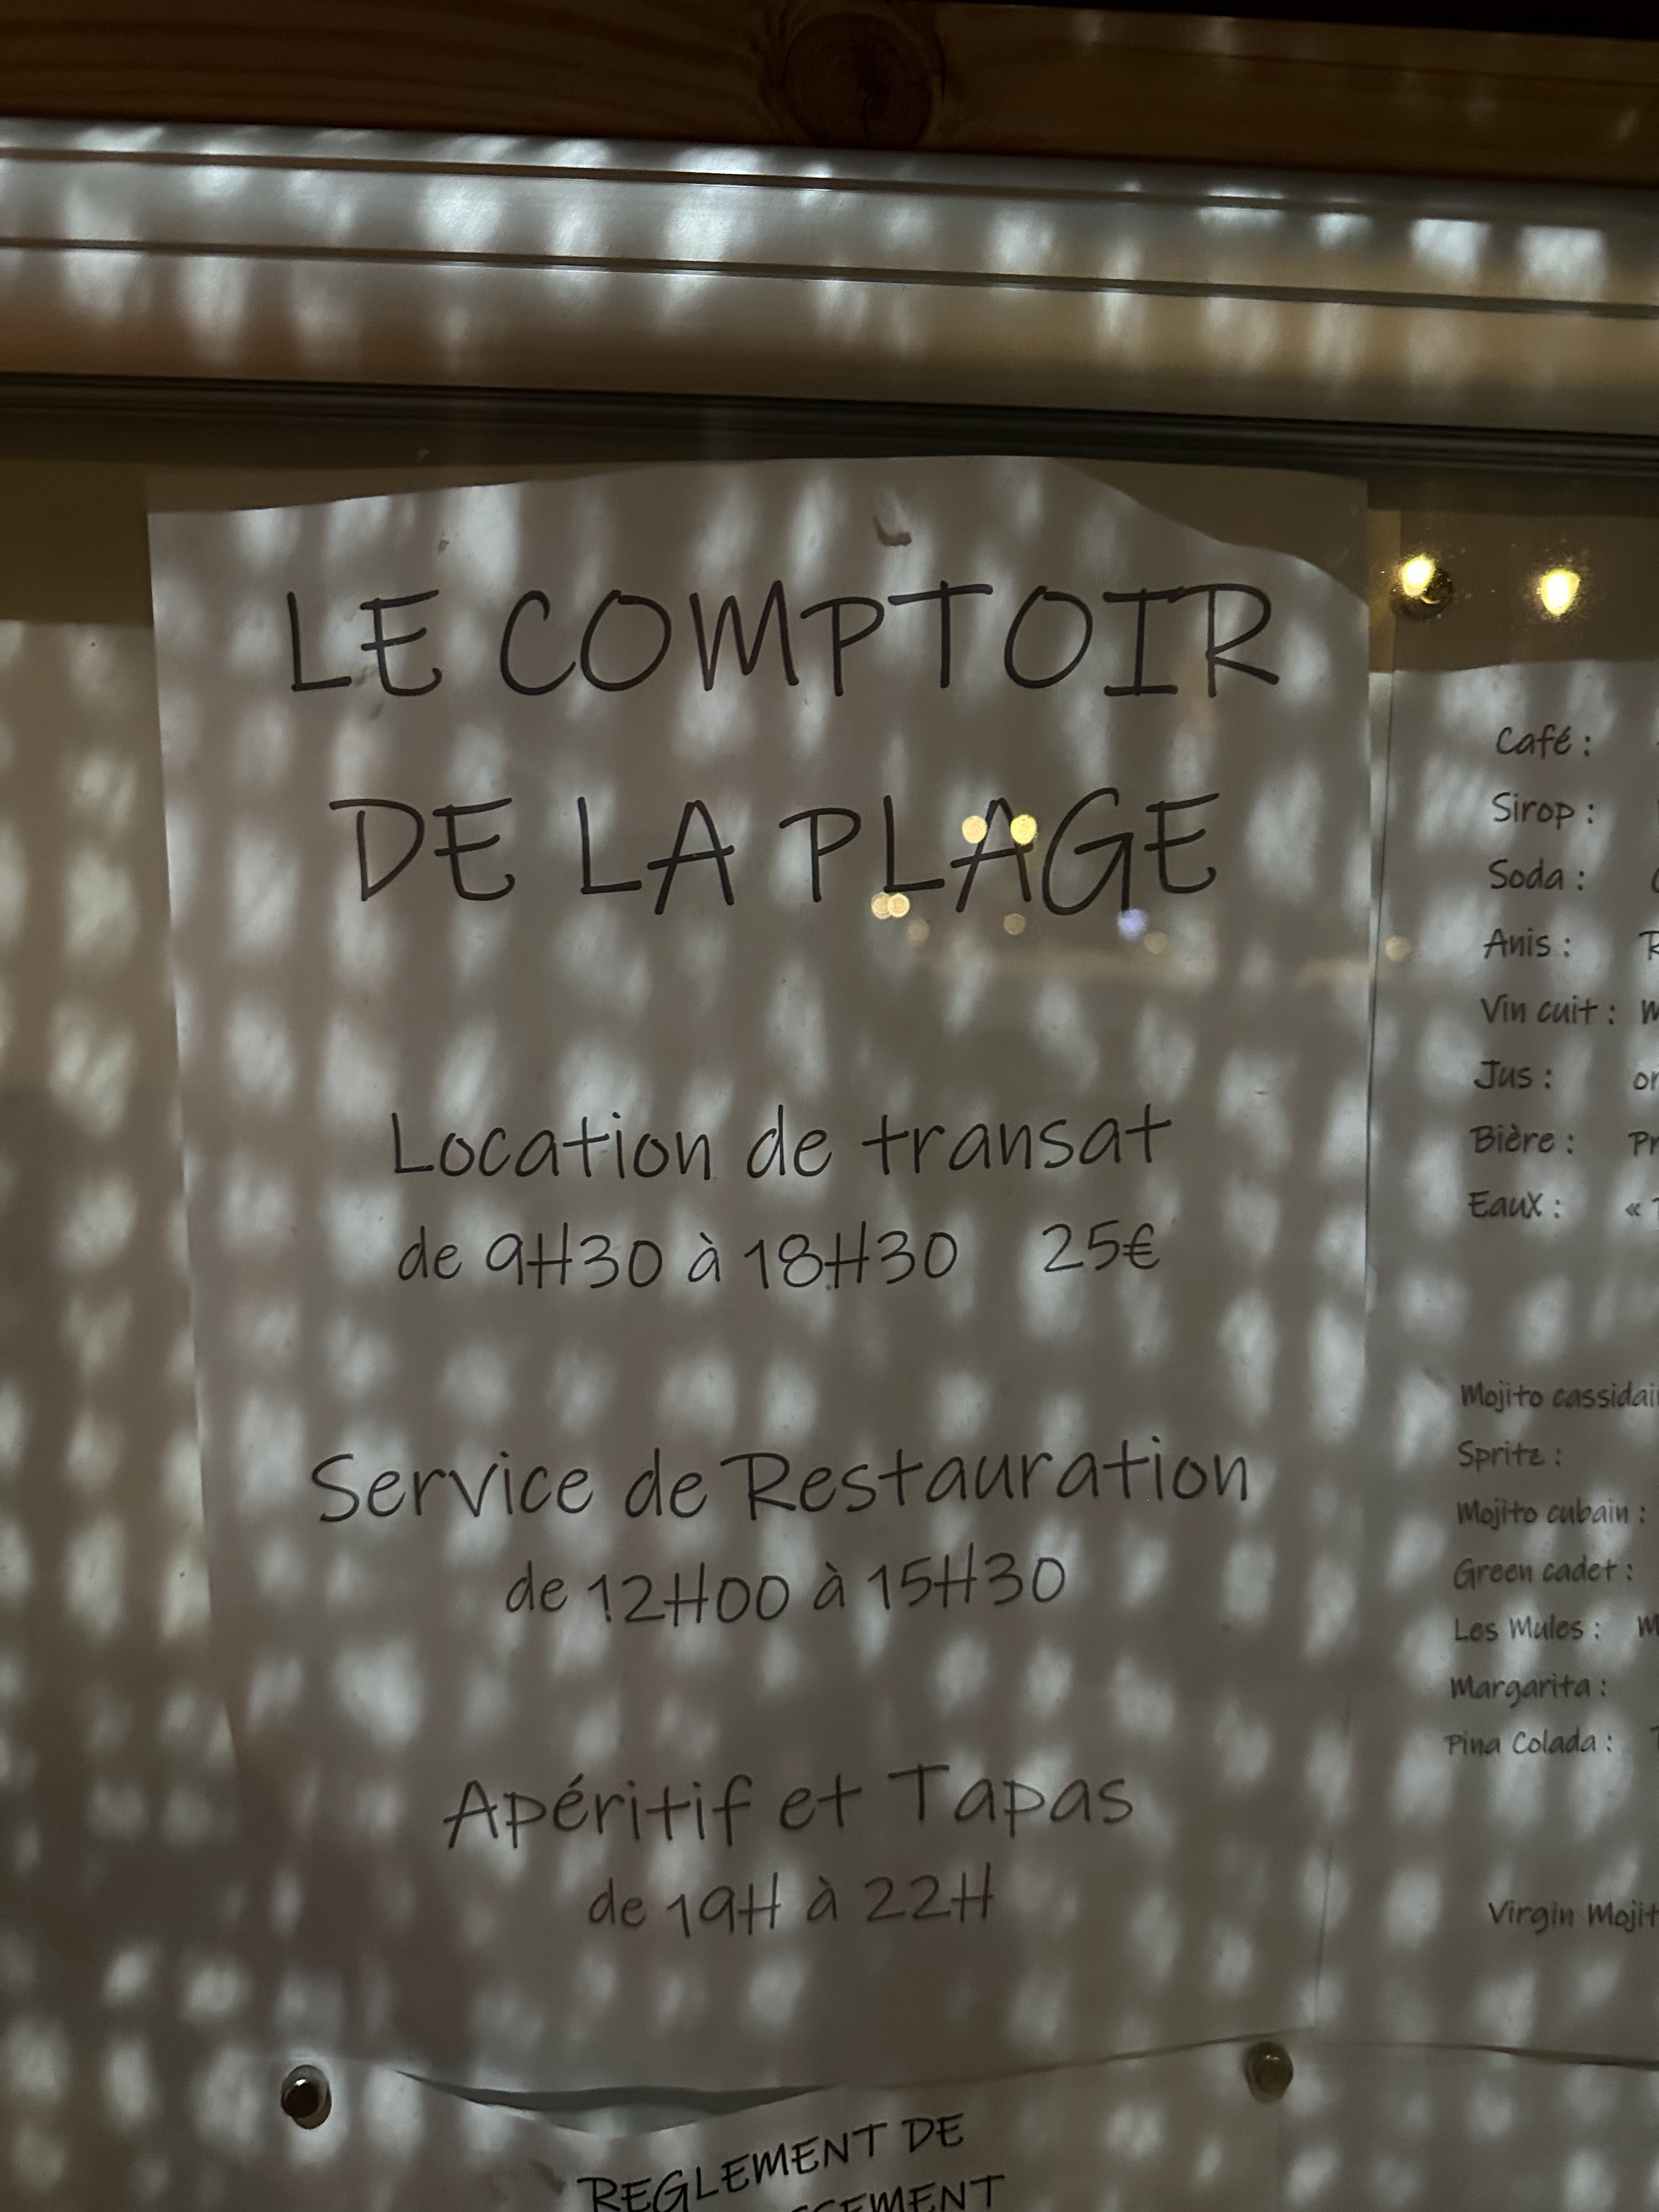 LE COMPTOIR
DE LA PLAGE
Location de transat
de 9H30 à 18H30 25€
Service de Restauration
de 12H00 à 15H30
Apéritif et Tapas
de 19H à 22H
REGLEMENT DE
Café :
Sirop :
Soda :
Anis :
Vin cuit :
Jus :
Bière :
Eaux : «
Mojito
Spritz :
Mojito cubain :
Green cadet :
Les Mules :
Margarita :
Pina Colada :
Virgin